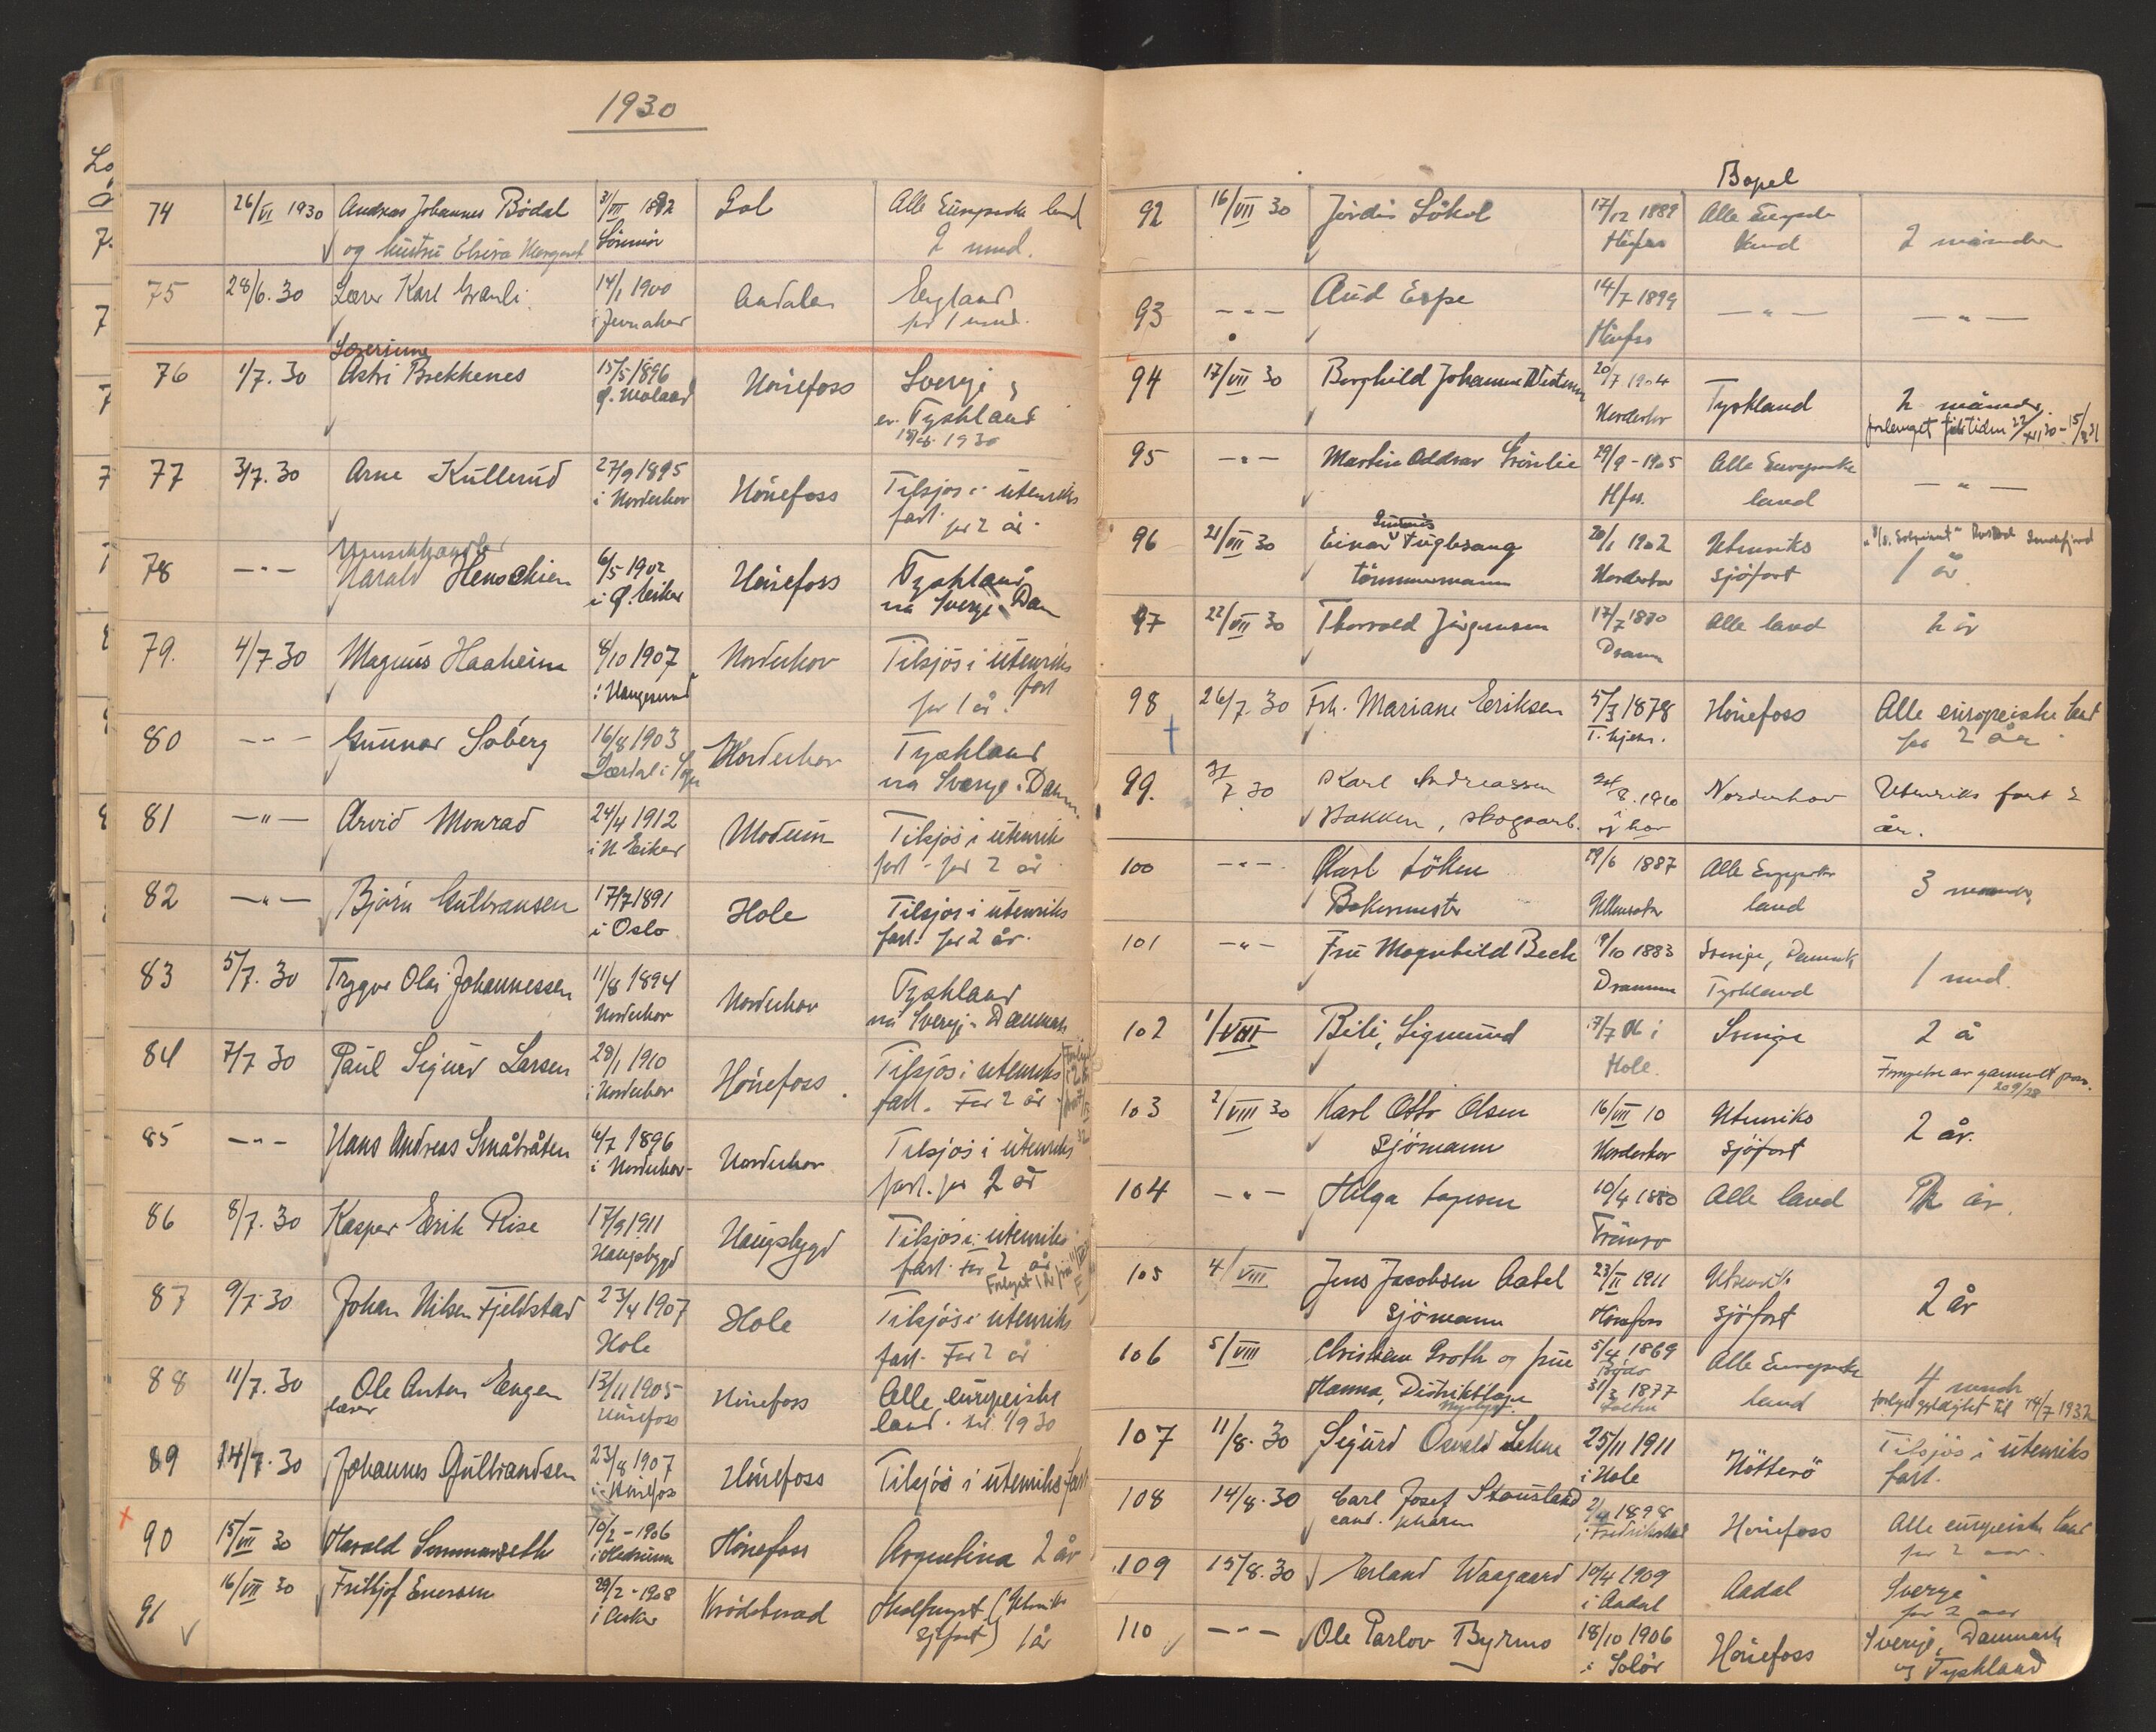 1930
74 26/VI 1930 Andreas Johannes Bödal 3/VII 1892 Gol Alle Europeiske land
og hustru Elvira Margaret 2 mnd.
75 28/6.30 Lærer Karl Granli 14/1 1900 England
i Jevnaker for 1 mnd.
Lærerinne
76 1/7.30 Astri Brekkenes 15/5 1896 Hönefoss Sverige
ev. Tyskland
1930
77 3/7.30 Arne Kullerud 27/9 1895 Hönefoss Tilsjös i utenriks
i Norderhov fart for 2 år.
78 -"- Harald Henschien 6/5 1902 Hönefoss Tyskland
i Ö. Eiker via Sverge Dan
79. 4/7.30 Magnus Haaheim 8/10 1907 Norderhov Tilsjös i utenriks
i Haugesund fart for 1 år.
80 -"- Gunnar Söberg 16/8 1903 Norderhov Tyskland
Lærdal i Sogn via Sverge. Danm.
81 -"- Arvid Monrad 24/4 1912 Modum Tilsjös i utenrik
i N Eiker fart for 2 år
82 -"- Björn Gulbransen 17/7 1891 Hole Tilsjös i utenriks
i Oslo fart. for 2 år.
83 5/7.30 Trygve Olai Johannessen 11/8 1894 Norderhov Tyskland
Norderhov via Sverge Danmark
84 7/7 30 Paul Sigurd Larsen 28/1 1910 Hönefoss. Tilsjös i utenriks
i Norderhov fart. For 2 år
85 -"- Hans Andreas Småbråten 6/7 1896 Norderhov Tilsjös i utenriks
i Norderhov fart. for 2 år
86 8/7.30 Kasper Erik Rise 17/9 1911 Haugsbygd Tilsjös i utenriks
Haugsbygd fart. For 2 år
87 9/7.30 Johan Nilsen Fjeldstad 23/4 1907 Hole Tilsjös i utenriks
Hole fart. For 2 år
88 11/7.30 Ole Anton Engen 13/11 1905 Hönefoss Alle europeiske
lærer Hönefoss land. til 1/9 30
89 14/7.30 Johannes Gulbrandsen 23/8 1907 Hönefoss Tilsjös i utenriks fart
i Hönefoss
90 15/VII 30 Harald Simmanseth 10/2-1906 Hönefoss Argentina 2 år
91 16/VII 30 Frithjof Enersen 29/2-1908 Krödsherad Hvalfangst (Utenriks
i Asker sjöfart) 1 år
Bopel
92 16/VII 30 Jördis Lökol 17/12 1889 Alle Europeiske
Hönefoss land 2 måneder
93 -"- Aud Espe 14/7 1899 -"- -"-
Hönefoss
94 17/VII 30 Borghild Johanne 20/7 1904 Tyskland 2 måneder
Norderhov forlenget
95 -"- Martin Oddvar Grönlie 29/9-1905 Alle Europeiske -"-
Hfss. land
96 21/VII 30 Einar Fuglesang 20/1 1902 Utenriks
tömmermann Norderhov sjöfart 1 år
97 22/VII 30 Thorvald Jörgensen 17/7 1880 Alle land 2 år
Dramm
98 26/7.30 Frk. Mariane Eriksen 5/3 1878 Hönefoss Alle europeiske land
for 2 år
99. 31/7 30 Karl Andreassen Norderhov Utenriks fart 2
Bakken, skogsarb. år.
100 -"- Karl Löken 19/6 1887 Alle Europeiske
Bakermester Ullensaker land 3 måneder
101 -"- Fru Magnhild Bech 19/10 1883 Sverige, Danmark
Drammen Tyskland 1 mnd.
102 1/VIII Bili, Sigmund 7/7 Sverige 2 å
Hole. Fornyelse av gammelt pass.
209/28
103 2/VIII 30 Karl Otto Olsen 16/VII 10 Utenriks
sjömann Norderhov sjöfart 2 år.
104 -"- Helga 10/4 1880 Alle land 2 år.
Tromsö
105 4/VIII Jens Jacobsen Aabel 23/II 1911 Utenriks
sjömann Hönefoss sjöfart 2 år
106 5/VIII Christian Groth og frue 5/4 1869 Alle Europeiske
Hanna, Distriktslege 31/3 1877 land 4 mndr
forlenget gyldighet til 14/7 1932
107 11/8.30 Sigurd Osvald Lehne 25/11 1911 Nötterö Tilsjös i utenriks
i Hole fart.
108 14/8.30 Carl Josef Stousland 2/4 1898 Hönefoss Alle europeiske land
cand. pharm i Fredrikstad for 2 aar.
109 15/8.30 Erland Waagaard 10/4 1909 Aadal Sverge
i Aadal for 2 aar
110 -"- Ole Parlov Byrmo 18/10 1906 Hönefoss Sverge, Danmark
i Solör og Tyskland